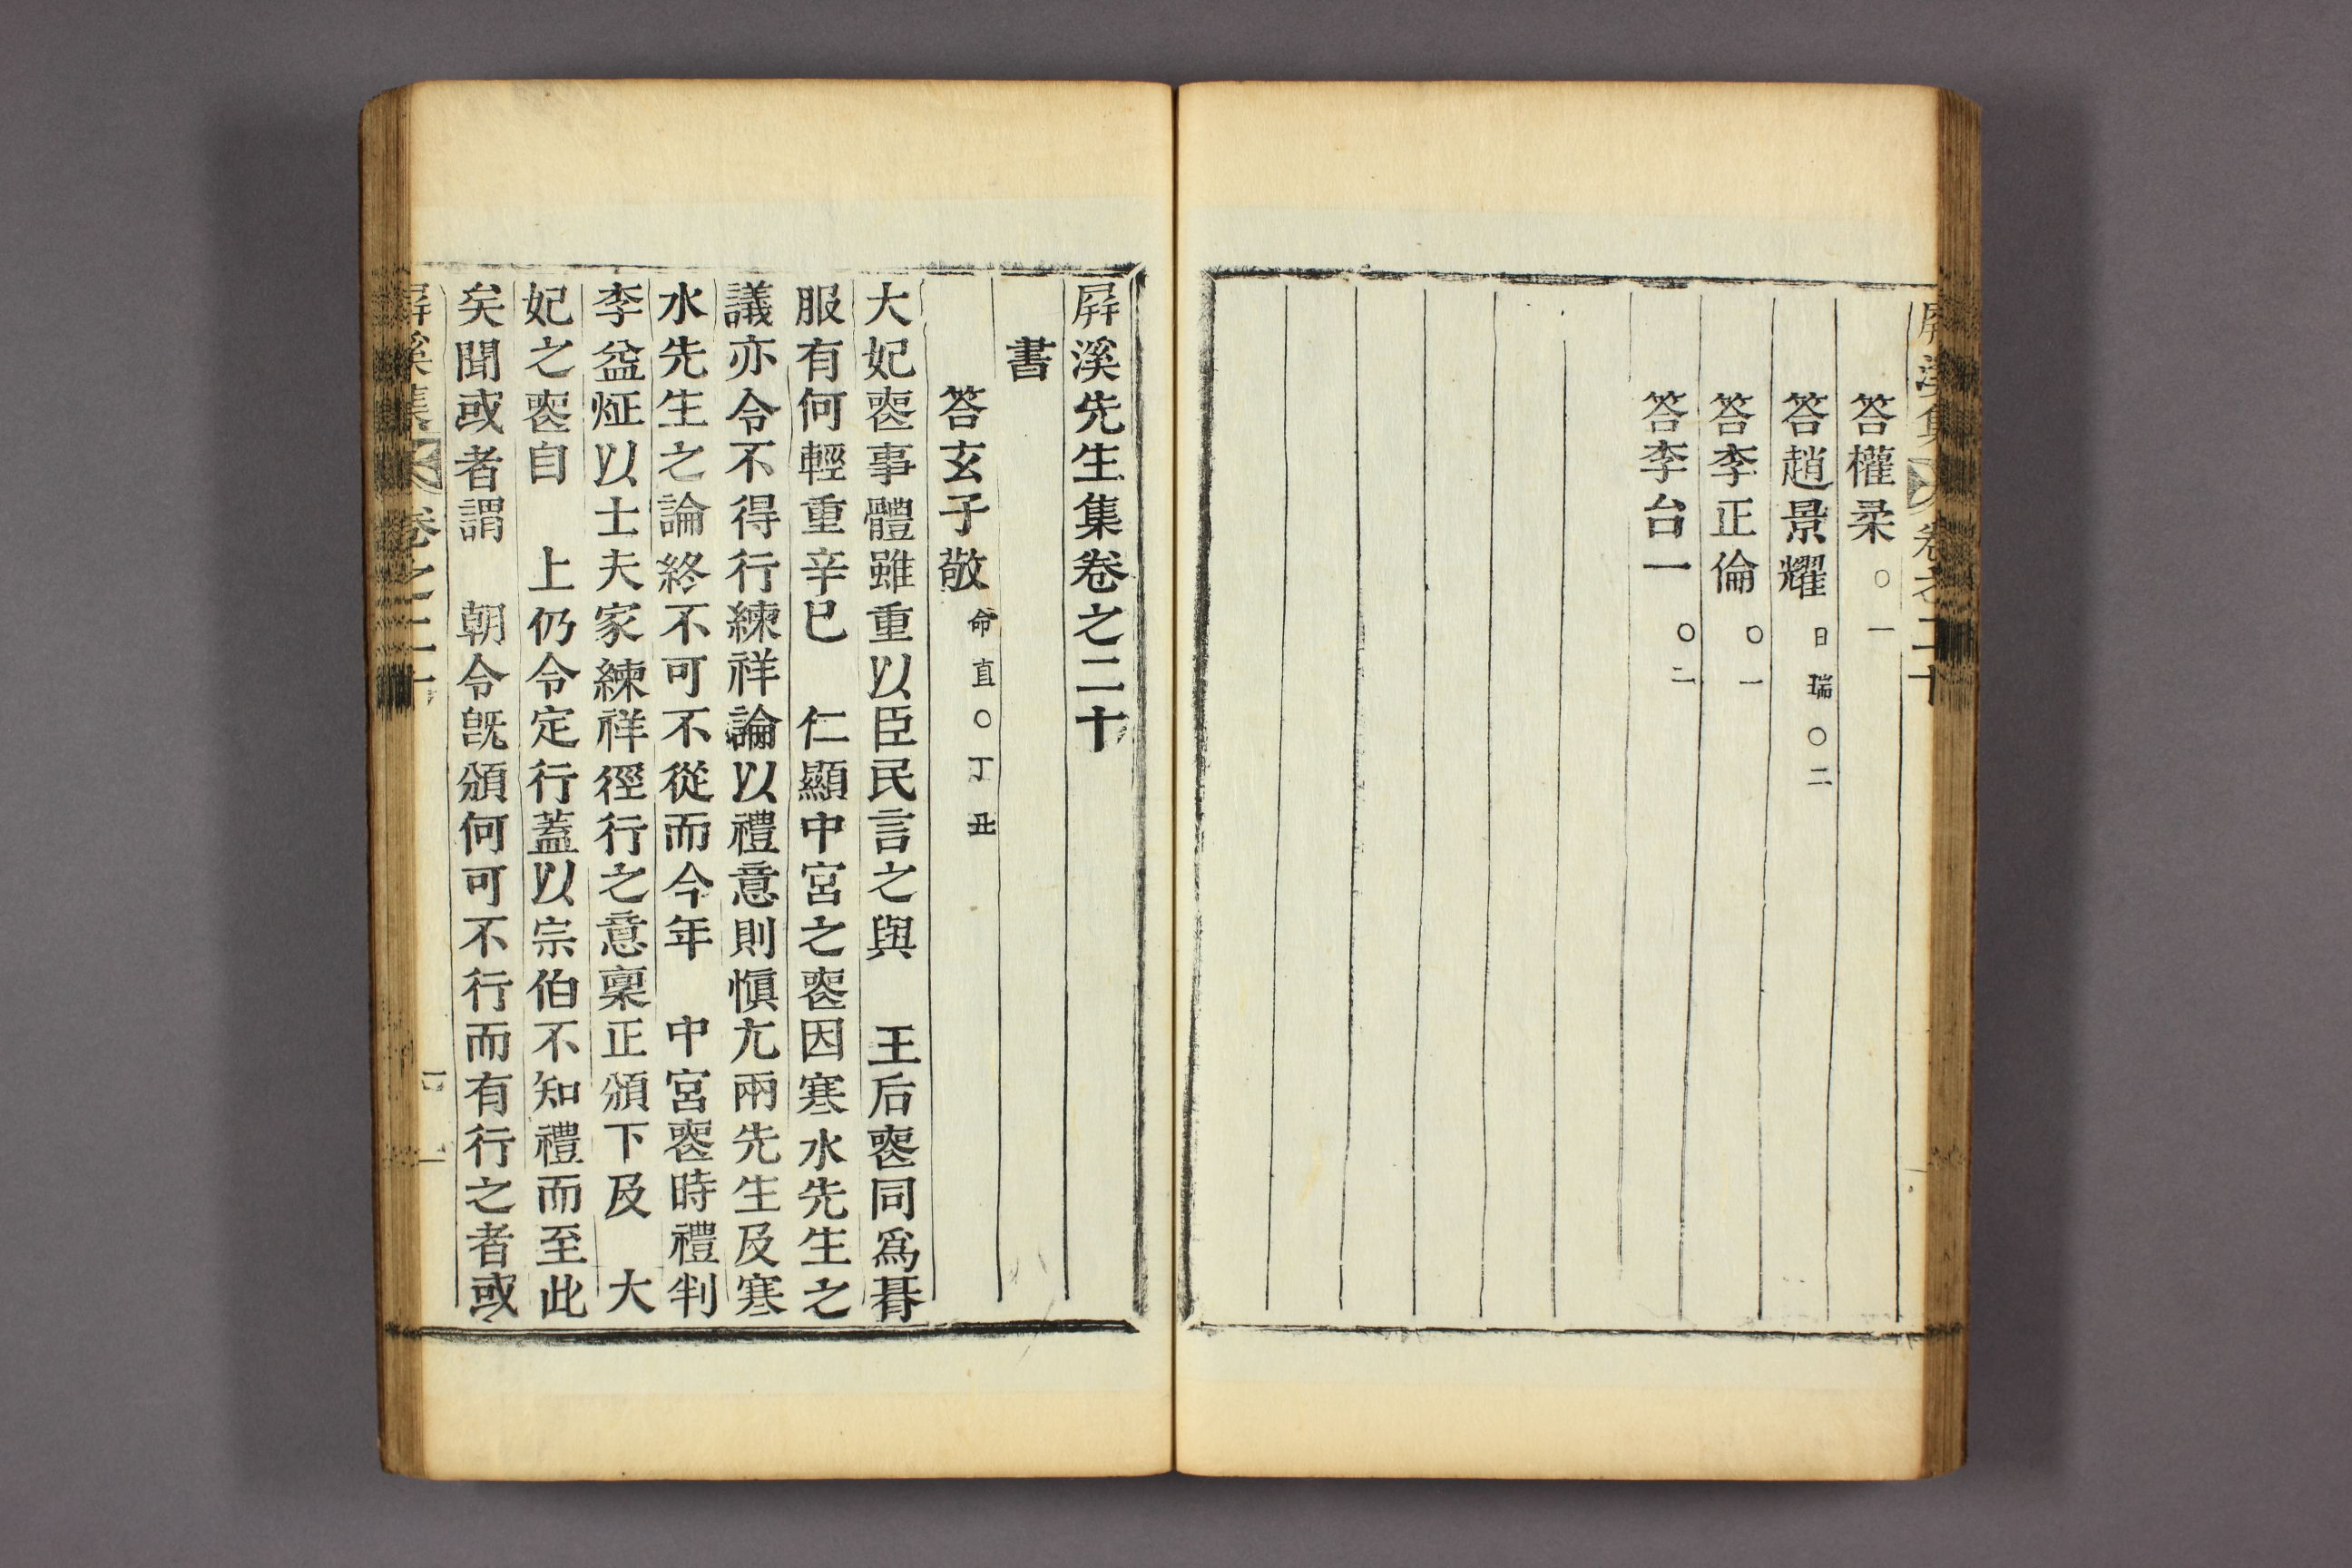 答權柔○一
答趙景耀日瑞○二
答李正倫○一
答李台一○二
屛溪先生集卷之二十
書
答玄子敬命直○丁丑
大妃喪事體雖重以臣民言之與 王后喪同爲朞
服有何輕重辛巳 仁顯中宮之喪因寒水先生之
議亦令不得行練祥論以禮意則愼尢兩先生及寒
水先生之論終不可不從而今年 中宮喪時禮判
李益炡以士夫家練祥徑行之意稟正頒下及 大
妃之喪自 上仍令定行蓋以宗伯不知禮而至此
矣聞或者謂 朝令旣頒何可不行而有行之者或
屛溪集 卷之二十 一